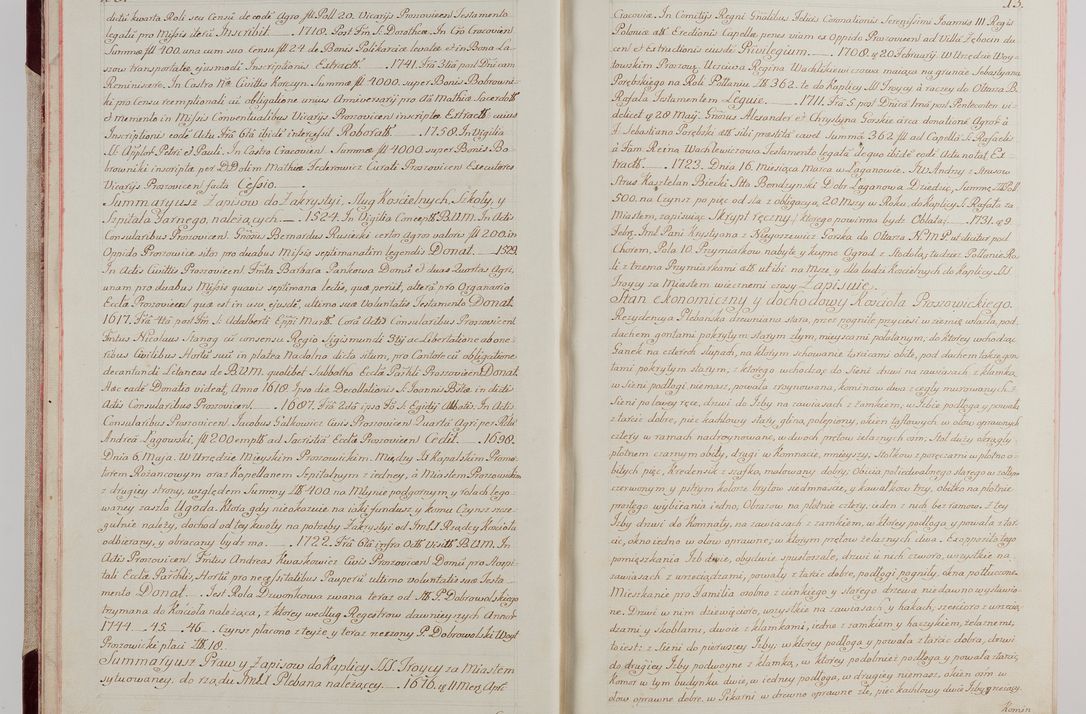 dictū kwarta Roli seu Censū de eodē Agro fll Poll 20. Vicarijs Proszovicen Testamento
legatū pro Missis iterū Inscribit. ___ 1718. Post Fm S. Dorothea. In Cio Cracovien
Summæ fll 400. una cum suo Censu fll 24. de Bonis Polikarcice levatæ et in Bona La-
szow transportatæ ejusmodi Inscriptionis Extractt. ___ 1741. Fria 3tia post Dnicam
Reminiscere. In Castro Nᵒ Civitis Korczyn. Summæ fll 4000. super Bonis Bobrowni-
ki pro Censu reemptionali cū obligatione unius Anniversarij pro Aa Mathia Sacerdott
et memento in Missis Conventualibus Vicarijs Proszovicen inscriptæ Extractt cuius
Inscriptionis eodē Actu Fria 6ta ibidē intercessit Roboratt. ___ 1758. In Vigilia
SS. Applor. Petri et Pauli. In Castro Cracovien. Summæ fll 4000 super Bonis Bo-
browniki inscriptæ per D.D. olim Mathiæ Federowicz Curati Proszovicen Executores
Vicarijs Proszovicen facta Cessio.
Summaryusz Zapisow do Zakrystyi, Sług Kościelnych, Szkoły, y
Szpitala Farnego, należących. ___ 1524. In Vigilia Concepts B.V.M. In Actis
Consularibus Proszovicen. Gnosus Bernardus Rusiecki certor Agror valoris fll 200. in
Oppido Proszowice sitor pro duabus Missis septimanatim legendis Donat. ___ 1529.
In Actis Civitis Proszovicen. Fmta Barbara Pankowa Domū et duas Quartas Agri,
unam pro duabus Missis quavis septimana lectis, quæ periit, alterā pro Organario
Ecclæ Proszovicen quæ est in usu ejusdē, ultimo suæ Voluntatis Testamento Donat.
1617. Fria 4ta post Fm S. Adalberti Eppi Martt. Corā Actis Consularibus Proszovicen
Fmtus Nicolaus Stanog cū consensu Regio Sigismundi IIItij ac Libertatione ab one-
ribus Civilibus Hortū suū in platea Nadolna dicta situm, pro Cantore cū obligatione
decantandi Litaneas de B.V.M. quolibet Sabbatho Ecclæ Parchli Proszovicen Donat.
Hæc eadē Donatio videat Anno 1618. Ipso die Decollationis S. Joannis Btæ in dictis
Actis Consularibus Proszovicen. ___ 1687. Fria 2da ipso Fo S. Egidij Abbatis. In Actis
Consularibus Proszovicen. Jacobus Galkowicz Civis Proszovicen Quartā Agri per Rdū
Andreā Lagowski, fll 200 emptā ad Sacristiā Ecclæ Proszovicen Cedit. ___ 1698.
Dnia 6. Maja. W Urzędzie Mieyskim Proszowickim. Między Xd Kapalskim Promo-
torem Różańcowym oraz Kapellanem Szpitalnym z iedney, á Miastem Proszowicom
z drugiey strony, względem Summy Złł 400. na Młynie podgornym y rolach lego-
waney zaszła Ugoda. Która gdy nieokazuie na iaki fundusz y komu Czynsz szcze-
gulnie należy, dochod od tey kwoty na potrzeby Zakrystyi od Imć J. Rządcy Kościoła
odbierany, y obracany bydź ma. ___ 1722. Fria 6ta infra Octt Visitt B.V.M. In
Actis Proszovicen. Fmtus Andreas Kwaskowicz Civis Proszovicen Domū pro Hospi-
tali Ecclæ Parchlis, Hortū pro necessitatibus Pauperū ultimo voluntatis suæ Testa-
mento Donat. ___ Jest Rola Dzwonkowa zwana teraz od Xtt P. Dobrowolskiego
trzymana do Kościoła należąca, z ktorey według Regestrow dawnieyszych Annor
1744. __ 45. __ 46. __ Czynsz płacono z teyże y teraz rzeczony P. Dobrowolski Woyt
Proszowicki płaci Złł 18.
Summaryusz Praw y Zapisow do Kaplicy SSS. Troycy za Miastem
sytuowaney, do rządu Imć J. Plebana należącey. ___ 1676. 11 Mens Apr.
13.
Cracoviæ. In Comitijs Regni Gnalibus Felicis Coronationis Serenissimi Joannis III Regis
Poloniæ att Erectionis Capellæ penes viam ex Oppido Proszovicen ad Villā Żębocin du-
cen et Extructionis eiusdē Privilegium. ___ 1708. 20 Februarij. W Urzędzie Woy-
towskim Proszow. Uczciwa Regina Wachlikiewiczowa maiąca na gruncie Sebastyana
Porębskiego na Roli Pollaniu Złł 362. te do Kaplicy SSS Troycy á raczey do Ołtarza S.
Rafała Testamentem Leguie. ___ 1711. Fria 5. post Dnicā Imā post Pentecosten vi-
delicet 28 Maij. Gnosus Alexander et Chrystyna Gorskie circa donationē Agror á
F. Sebastiano Porębski att sibi præstitā cavet Summā 362 fll ad Capellā S. Rafaelis
á Fam Reina Wachlewiczowa Testamento legatā deque ibidē eodē Actu notat Ex-
tractt. ___ 1723. Dnia 16. Miesiąca Marca w Łaganowie. JW Andrzy z Strusow
Strus Kasztelan Biecki Sttta Bendzynski Dobr Łaganowa Dziedzic, Summę Złł Poll
500. na Czynsz po pięć od sta z obligacyą 20 Mszy w Roku do Kaplicy S. Rafała za
Miastem, zapisuiąc Skrypt ręczny / ktorego powinna bydz Oblata /. ___ 1731. 9.
Febrij Imć Pani Krystyna z Nagoszewic Gorska do Ołtarza N.M.P. ut dicitur pod
Chorem, Pola 10. Przymiarkow nabyte y kupne Ogrod z Stodołą tudziez Pollanie Ro-
li z trzema Przymiarkami att ut ibi na Mszę y dla ludzi Kościelnych do Kaplicy SSS
Troycy za Miastem wieczonemi czasy Zapisuie.
Stan ekonomiczny y dochodowy Kościoła Proszowickiego.
Rezydencya Plebańska drzewniana stara, przez pogniłe przyciesi w ziemię wlazła, pod
dachem gontami pokrytym starym złym, mieyscami połatanym, do ktorey wchodząc
Ganek na czterech słupach, na ktorym schowanie tarcicami obite, pod dachem takze gon-
tami pokrytym starym, z ktorego wchodząc do Sieni drzwi na zawiasach z klamką,
w Sieni podłogi niemasz, powała zrujnowana, kominow dwa z cegły murowanych. Z
Sieni po lewey ręce, drzwi do Izby na zawiasach z zamkiem, w Izbie podłoga y powała
z tarcic dobre, piec kachlowy stary, gliną polepiony, okien taflowych w ołow oprawnych
cztery w ramach nadruynowane, w dwoch prętow żelaznych osm. Stoł duży okrągły
płotnem czarnym obity, drugi w Komnacie, mnieyszy, Stołkow z poręczami w płotno o-
bitych pięć, Kredensik z szafką, malowany dobry; Obicia poiedwabnego starego w żołtym
czerwonym y pstrym kolorze brytow siedmnascie, y kawałkow trzy, obitko na płotnie
prostego wybirania iedno, Obrazow na płotnie cztery, ieden z nich bez ramow. Z tey
Izby drzwi do Komnaty, na zawiasach z zamkiem, w ktorey podłoga y powała z tar-
cic, okno iedno w ołow oprawne, w ktorym prętow żelaznych dwa. Ex opposito tego
pomieszkania Izb dwie, obydwie spustoszałe, drzwi ū nich czworo, wszystkie na
zawiasach z wrzeciądzami, powały z tarcic dobre, podłogi pogniły, okna potłuczone.
Mieszkanie pro Familia osobno z cienkiego y starego drzewa niedawno wystawio-
ne. Drzwi w nim dziewięcioro, wszystkie na zawiasach y hakach, sześcioro z wrzecią-
dzami y skoblami, dwoie z klamkami, iedne z zamkiem y haczykiem, żelaznemi,
to iest: z Sieni do pierwszey Izby; w ktorey podłoga y powała z tarcic dobra, drzwi
do drugiey Izby podwoyne z klamką, w ktorey podobnież podłoga y powała z tarcic,
Komor w tym budynku dwie, w iedney podłoga, w drugiey niemasz, okien osm w
ołow oprawne dobre, w Pikarni w drzewo oprawne złe, piec kachlowy dwie Izby grzeiący.
Komin